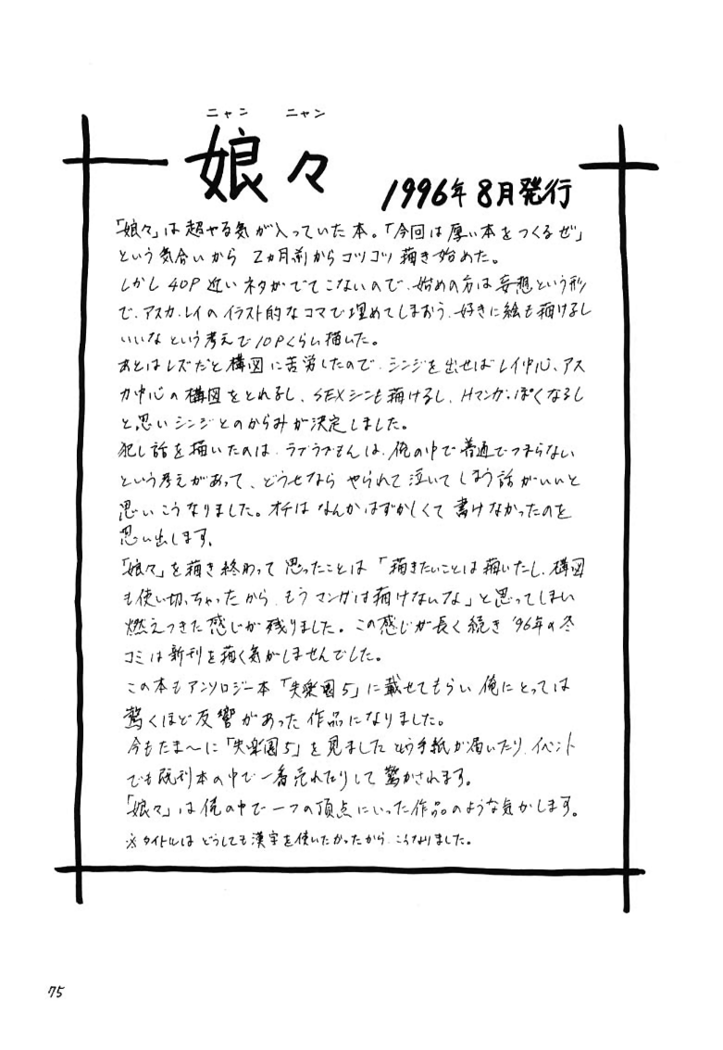 ニャン ニャン
娘々
1996年8月発行
「娘々」は超やる気が入っていた本。「今回は厚い本をつくるぜ」
という気合いから 2カ月前からコツコツ描き始めた。
しかし40P近いネタがでてこないので、始めの方は妄想という形
で、アスカ、レイのイラスト的なコマで埋めてしまおう、好きに絵も描けるし
いいなという考えで10Pくらい描いた。
あとはレズだと構図に苦労したので、シンジを出せばレイ中心、アス
カ中心の構図をとれるし、SEXシンも描けるし、Hマンガっぽくなるし
と思いシンジとのからみが決定しました。
犯し話を描いたのは、ラブラブもんは、俺の中で普通でつまらない
という考えがあって、どうせなら やられて泣いてしまう話がいいと
思いこうなりました。オチはなんかはずかしくて書けなかったのを
思い出します。
「娘々」を描き終わって思ったことは「描きたいことは描いたし、構図
も使い切っちゃったから、もうマンガは描けないな」と思ってしまい
燃えつきた感じが残りました。この感じが長く続き'96年の冬
コミは新刊を描く気がしませんでした。
この本もアンソロジー本「失楽園5」に載せてもらい俺にとっては
驚くほど反響があった作品になりました。
今もたま〜に「失楽園5」を見ましたという手紙が届いたり、イベント
でも既刊本の中で一番売れたりして驚かされます。
「娘々」は俺の中で一つの頂点にいった作品のような気がします。
※タイトルはどうしても漢字を使いたかったから、こうなりました。
75